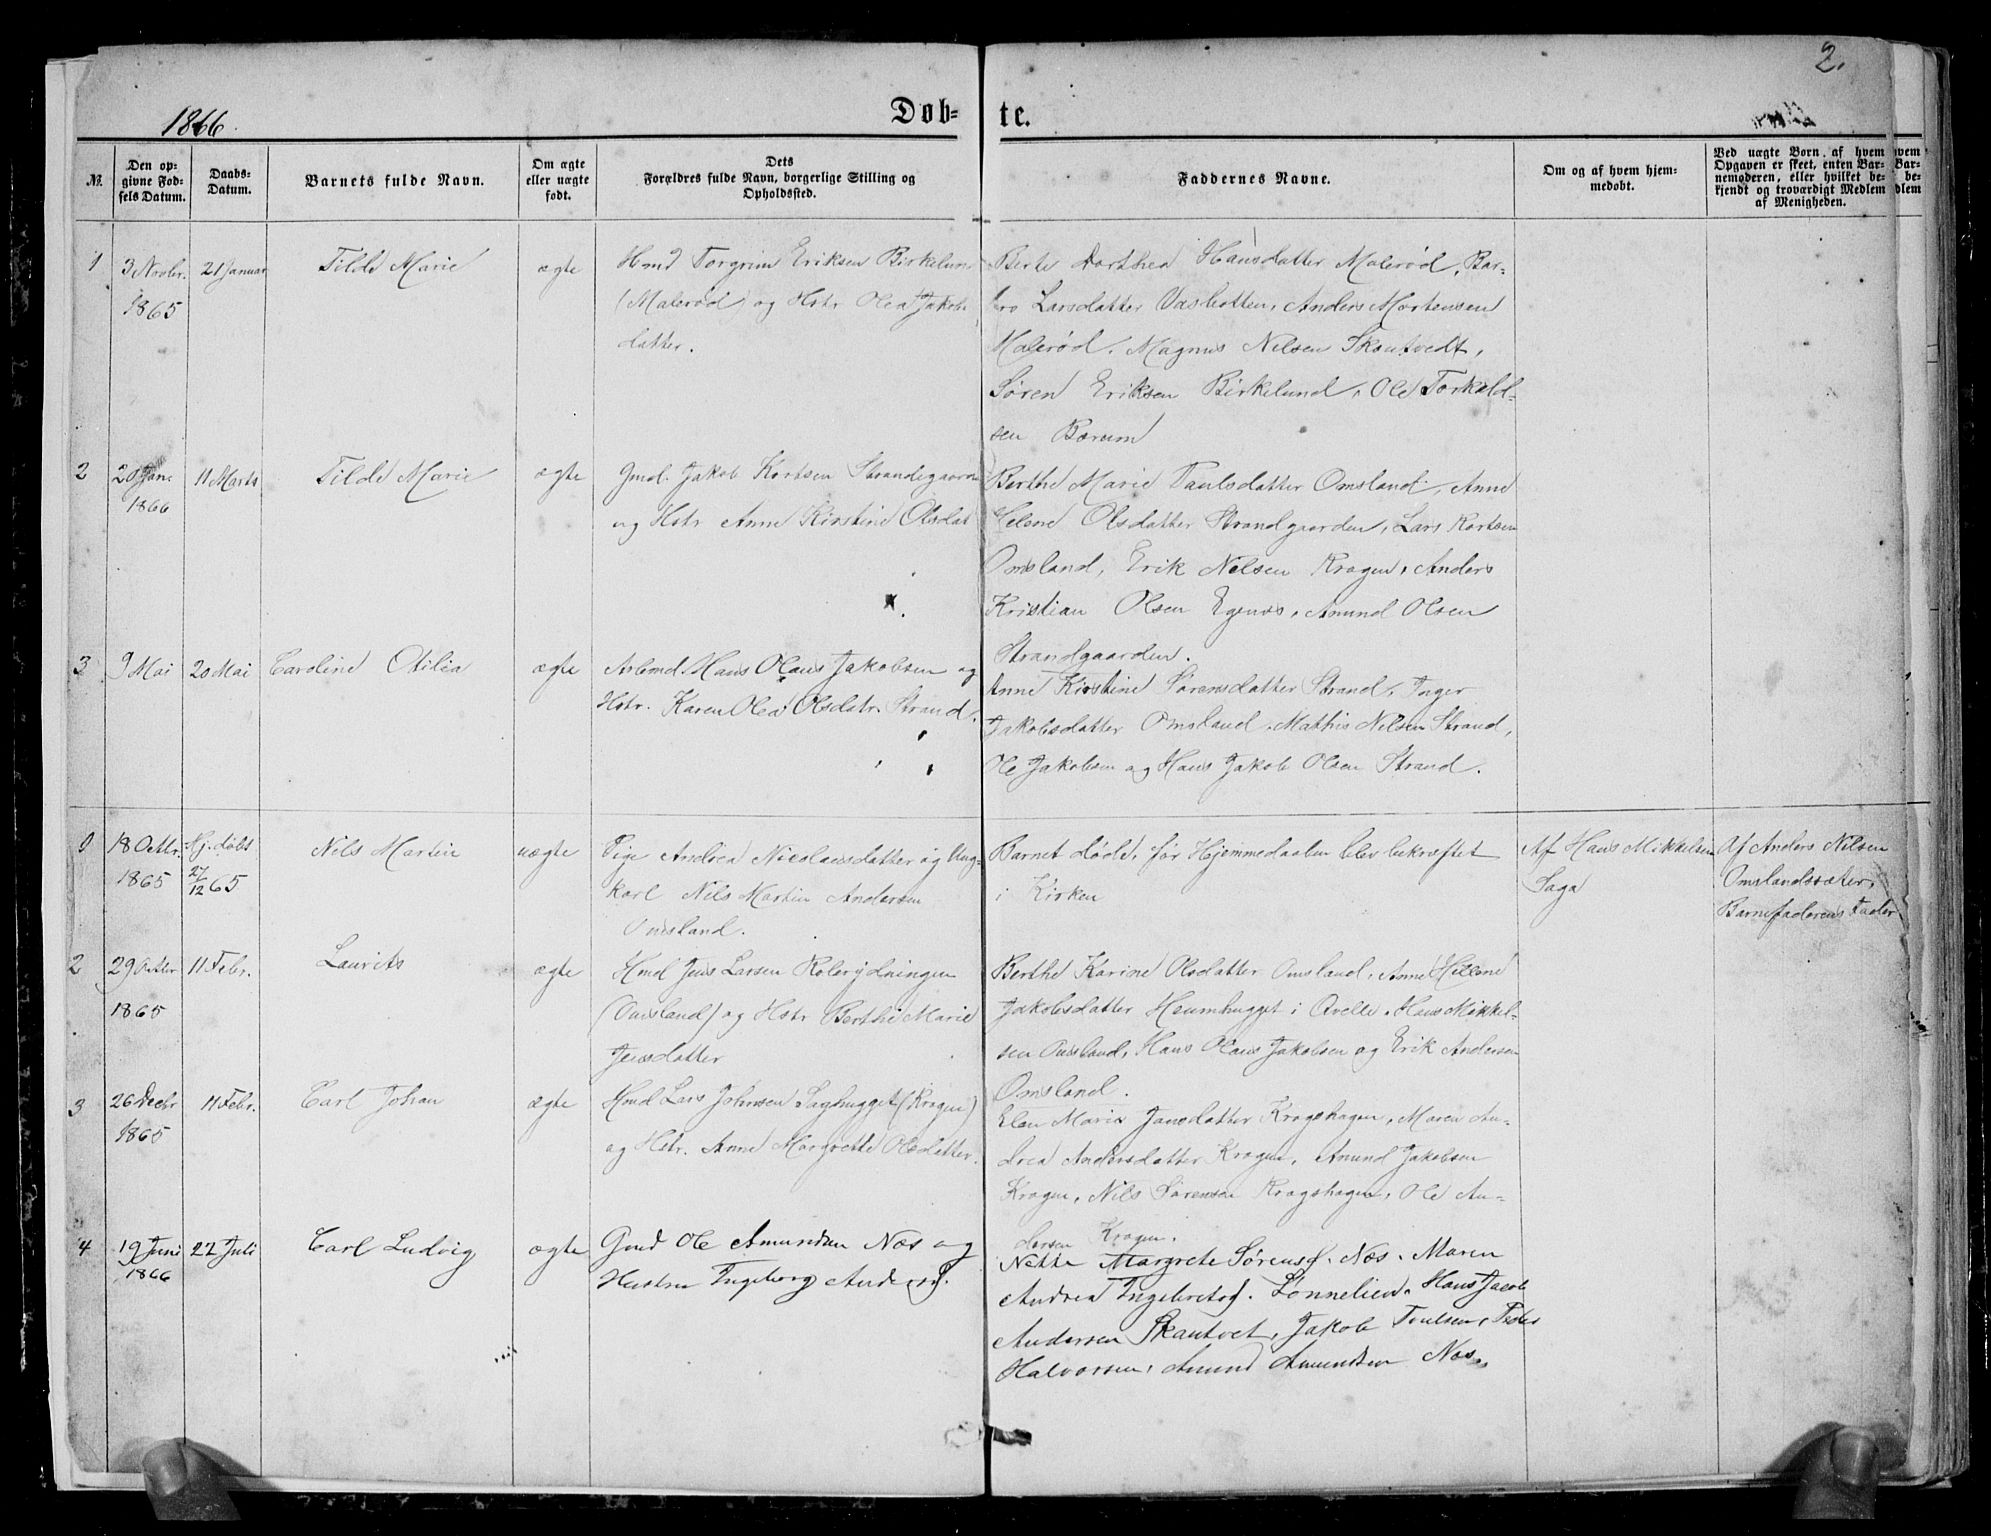 2.
1866.
Døb=
te.
№.
Den op=
givne Fød=
sels Datum.
Daabs=
Datum.
Barnets fulde Navn.
Om ægte
eller uægte
født.
Dets
Forældres fulde Navn, borgerlige Stilling og
Opholdssted.
Faddernes Navne.
Om og af hvem hjem=
medøbt.
Ved uægte Børn, af hvem
Opgaven er skeet, enten Bar=
nemoderen, eller hvilket be=
kjendt og troværdigt Medlem
af Menigheden.
hvem
Bar=
be=
dlem
1
3 Novbr.
1865
21 Januar
Tilde Marie
ægte
Hmd Torgrim Eriksen Birkelund
(Malerød) og Hstr Olea Jakobs
datter.
Berte Dorthea Hansdatter Malerød, Bar-
bro Larsdatter Vasbotten, Anders Mortensen
Malerød, Magnus Nilsen Skoutvedt,
Søren Eriksen Birkelund, Ole Torkeld-
sen Bærum
2
20 Jan.
1866
11 Marts
Tilde Marie
ægte
Gmd. Jakob Kortsen Strandegaarden
og Hstr Anne Kirstine Olsdat
Berthe Marie Paulsdatter Omsland, Anne
Helene Olsdatter Strandgaarden, Lars Kortsen
Omsland, Erik Nelsen Kragen, Anders
Kristian Olsen Egenæs, Amund Olsen
Strandgaarden.
3
9 Mai
20 Mai
Caroline Otilia
ægte
Arbmd. Hans Olaus Jakobsen og
Hstr. Karen Olea Olsdatr. Strand.
Anne Kirstine Sørensdatter Strand, Inger
Jakobsdatter Omsland, Mathis Nilsen Strand,
Ole Jakobsen og Hans Jakob Olsen Strand.
1
18 Octbr.
1865
Hj. døbt
27/12 65
Nils Martin
uægte
Pige Andrea Nicolaisdatter og Ung-
karl Nils Martin Andersen
Omsland.
Barnet døde, før Hjemmedaaben blev bekræftet
i Kirken
Af Hans Mikkelsen
Saga
Af Anders Nilsen
Omslandsæter,
Barnefaderens Fader
2
29 Octbr
1865
11 Febr.
Laurits
ægte
Hmd Jens Larsen Rolerydningen
(Omsland) og Hstr Berthe Marie
Jensdatter
Berthe Karine Olsdatter Omsland, Anne Hellene
Jakobsdatter Heumhugget i Qvelle, Hans Mikkel-
sen Omsland, Hans Olaus Jakobsen og Erik Andersen
Omsland.
3
26 Decbr
1865
11 Febr.
Carl Johan
ægte
Hmd Lars Johnsen Saghugget (Kragen)
og Hstr. Anne Margrethe Olsdatter.
Elen Maria Jansdatter Kragshagen, Maren An-
drea Andersdatter Kragen, Amund Jakobsen
Kragen, Nils Sørensen Kragshagen, Ole An-
dersen Kragen.
4
19 Juni
1866
22 Juli
Carl Ludvig
ægte
Gmd Ole Amundsen Næs og
Hustru Ingeborg Andersd.
Nette Margrete Sørensd. Næs, Maren
Andrea Ingebretsd. Lønnelien, Hans Jacob
Andersen Skautvet, Jakob Poulsen, Peder
Halvorsen, Amund Amundsen Næs.